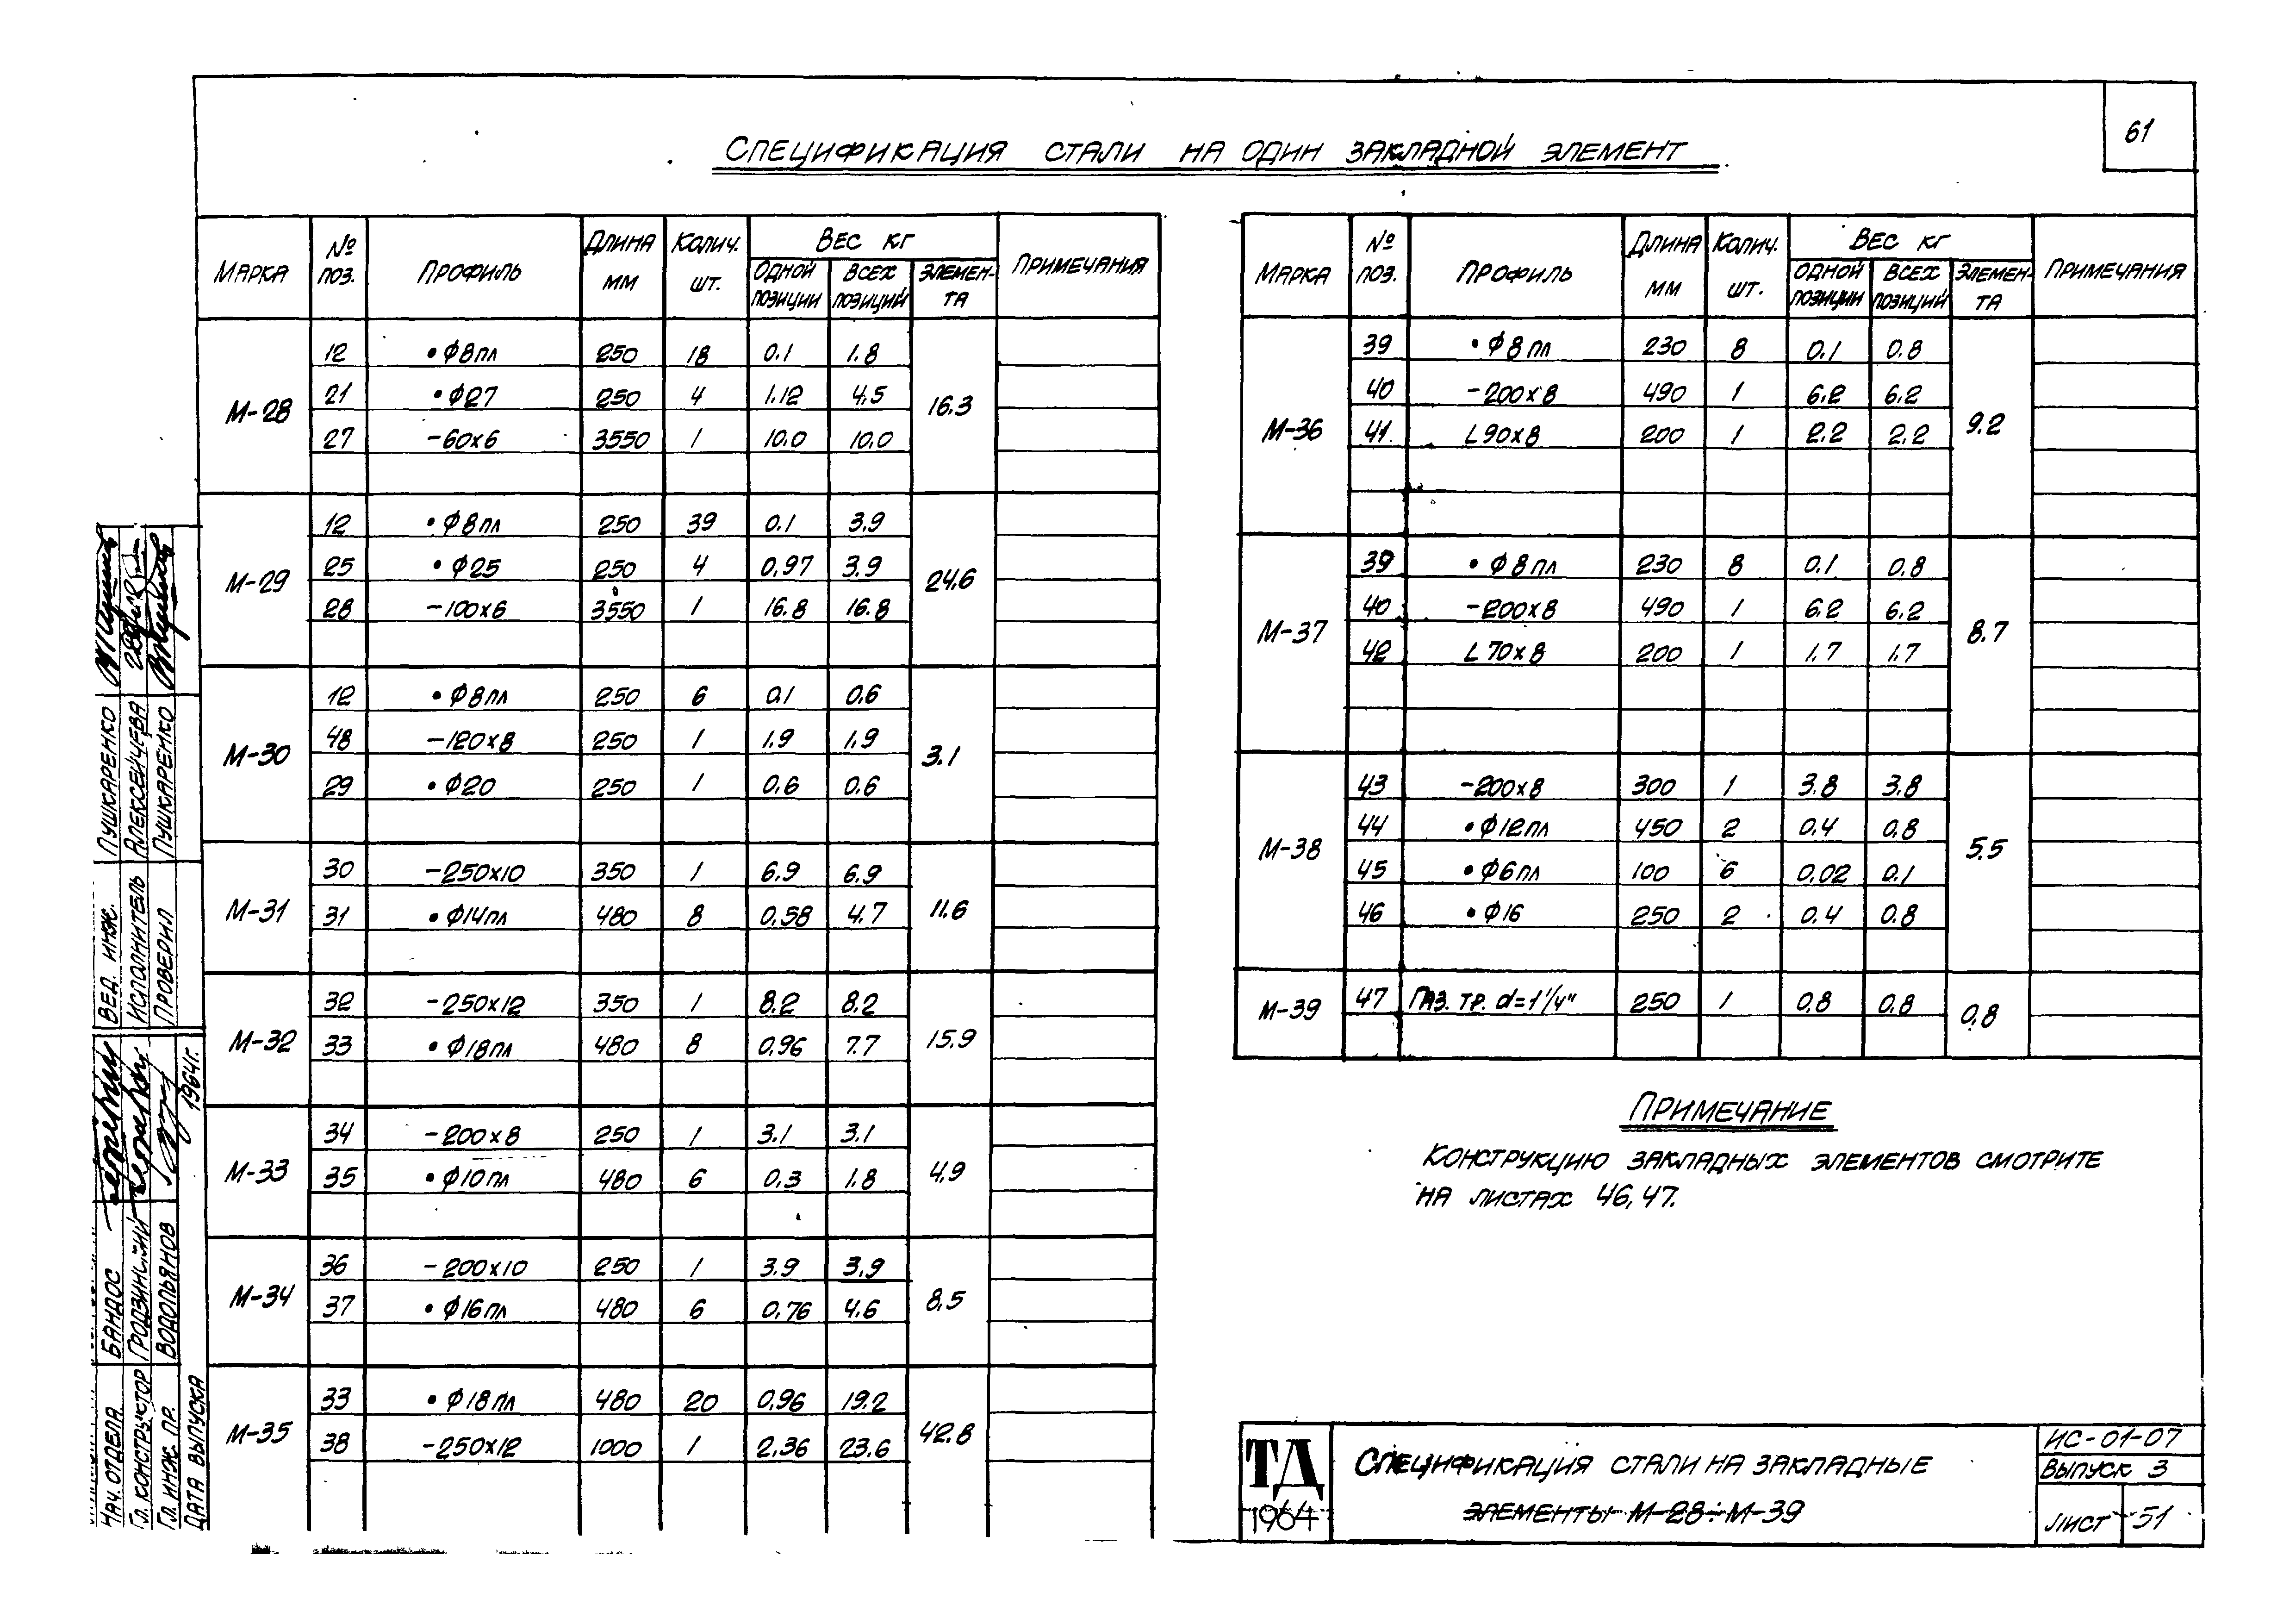 61
СПЕЦИФИКАЦИЯ СТАЛИ НА ОДИН ЗАКЛАДНОЙ ЭЛЕМЕНТ
МАРКА № ПОЗ. ПРОФИЛЬ ДЛИНА ММ КОЛИЧ. ШТ. ВЕС КГ ПРИМЕЧАНИЯ
ОДНОЙ ПОЗИЦИИ ВСЕХ ПОЗИЦИЙ ЭЛЕМЕН-ТА
М-28 16.3
12 •Ф8пл 250 18 0.1 1.8
21 •Ф27 250 4 1.12 4.5
27 -60x6 3550 1 10.0 10.0
М-29 24.6
12 •Ф8пл 250 39 0.1 3.9
25 •Ф25 250 4 0.97 3.9
28 -100x6 3550 1 16.8 16.8
М-30 3.1
12 •Ф8пл 250 6 0.1 0.6
48 -120x8 250 1 1.9 1.9
29 •Ф20 250 1 0.6 0.6
М-31 11.6
30 -250x10 350 1 6.9 6.9
31 •Ф14пл 480 8 0.58 4.7
М-32 15.9
32 -250x12 350 1 8.2 8.2
33 •Ф18пл 480 8 0.96 7.7
М-33 4.9
34 -200x8 250 1 3.1 3.1
35 •Ф10пл 480 6 0.3 1.8
М-34 8.5
36 -200x10 250 1 3.9 3.9
37 •Ф16пл 480 6 0.76 4.6
М-35 42.8
33 •Ф18пл 480 20 0.96 19.2
38 -250x12 1000 1 2.36 23.6
МАРКА № ПОЗ. ПРОФИЛЬ ДЛИНА ММ КОЛИЧ. ШТ. ВЕС КГ ПРИМЕЧАНИЯ
ОДНОЙ ПОЗИЦИИ ВСЕХ ПОЗИЦИЙ ЭЛЕМЕН-ТА
М-36 9.2
39 •Ф8пл 230 8 0.1 0.8
40 -200x8 490 1 6.2 6.2
41 L90x8 200 1 2.2 2.2
М-37 8.7
39 •Ф8пл 230 8 0.1 0.8
40 -200x8 490 1 6.2 6.2
42 L70x8 200 1 1.7 1.7
М-38 5.5
43 -200x8 300 1 3.8 3.8
44 •Ф12пл 450 2 0.4 0.8
45 •Ф6пл 100 6 0.02 0.1
46 •Ф16 250 2 0.4 0.8
М-39 0.8
47 ГАЗ. ТР. d=1¼" 250 1 0.8 0.8
ПРИМЕЧАНИЕ
КОНСТРУКЦИЮ ЗАКЛАДНЫХ ЭЛЕМЕНТОВ СМОТРИТЕ
НА ЛИСТАХ 46,47.
ТД
1964
СПЕЦИФИКАЦИЯ СТАЛИ НА ЗАКЛАДНЫЕ
ЭЛЕМЕНТЫ М-28÷М-39
ИС-01-07
ВЫПУСК 3
ЛИСТ 51
ВЕД. ИНЖ. ПУШКАРЕНКО
ИСПОЛНИТЕЛЬ АЛЕКСЕЙЦЕВА
ПРОВЕРИЛ ПУШКАРЕНКО
НАЧ. ОТДЕЛА БАНДОС
ГЛ. КОНСТРУКТОР ГРОДЗИНСКИЙ
ГЛ. ИНЖ. ПР. ВОДОПЬЯНОВ
ДАТА ВЫПУСКА 1964г.